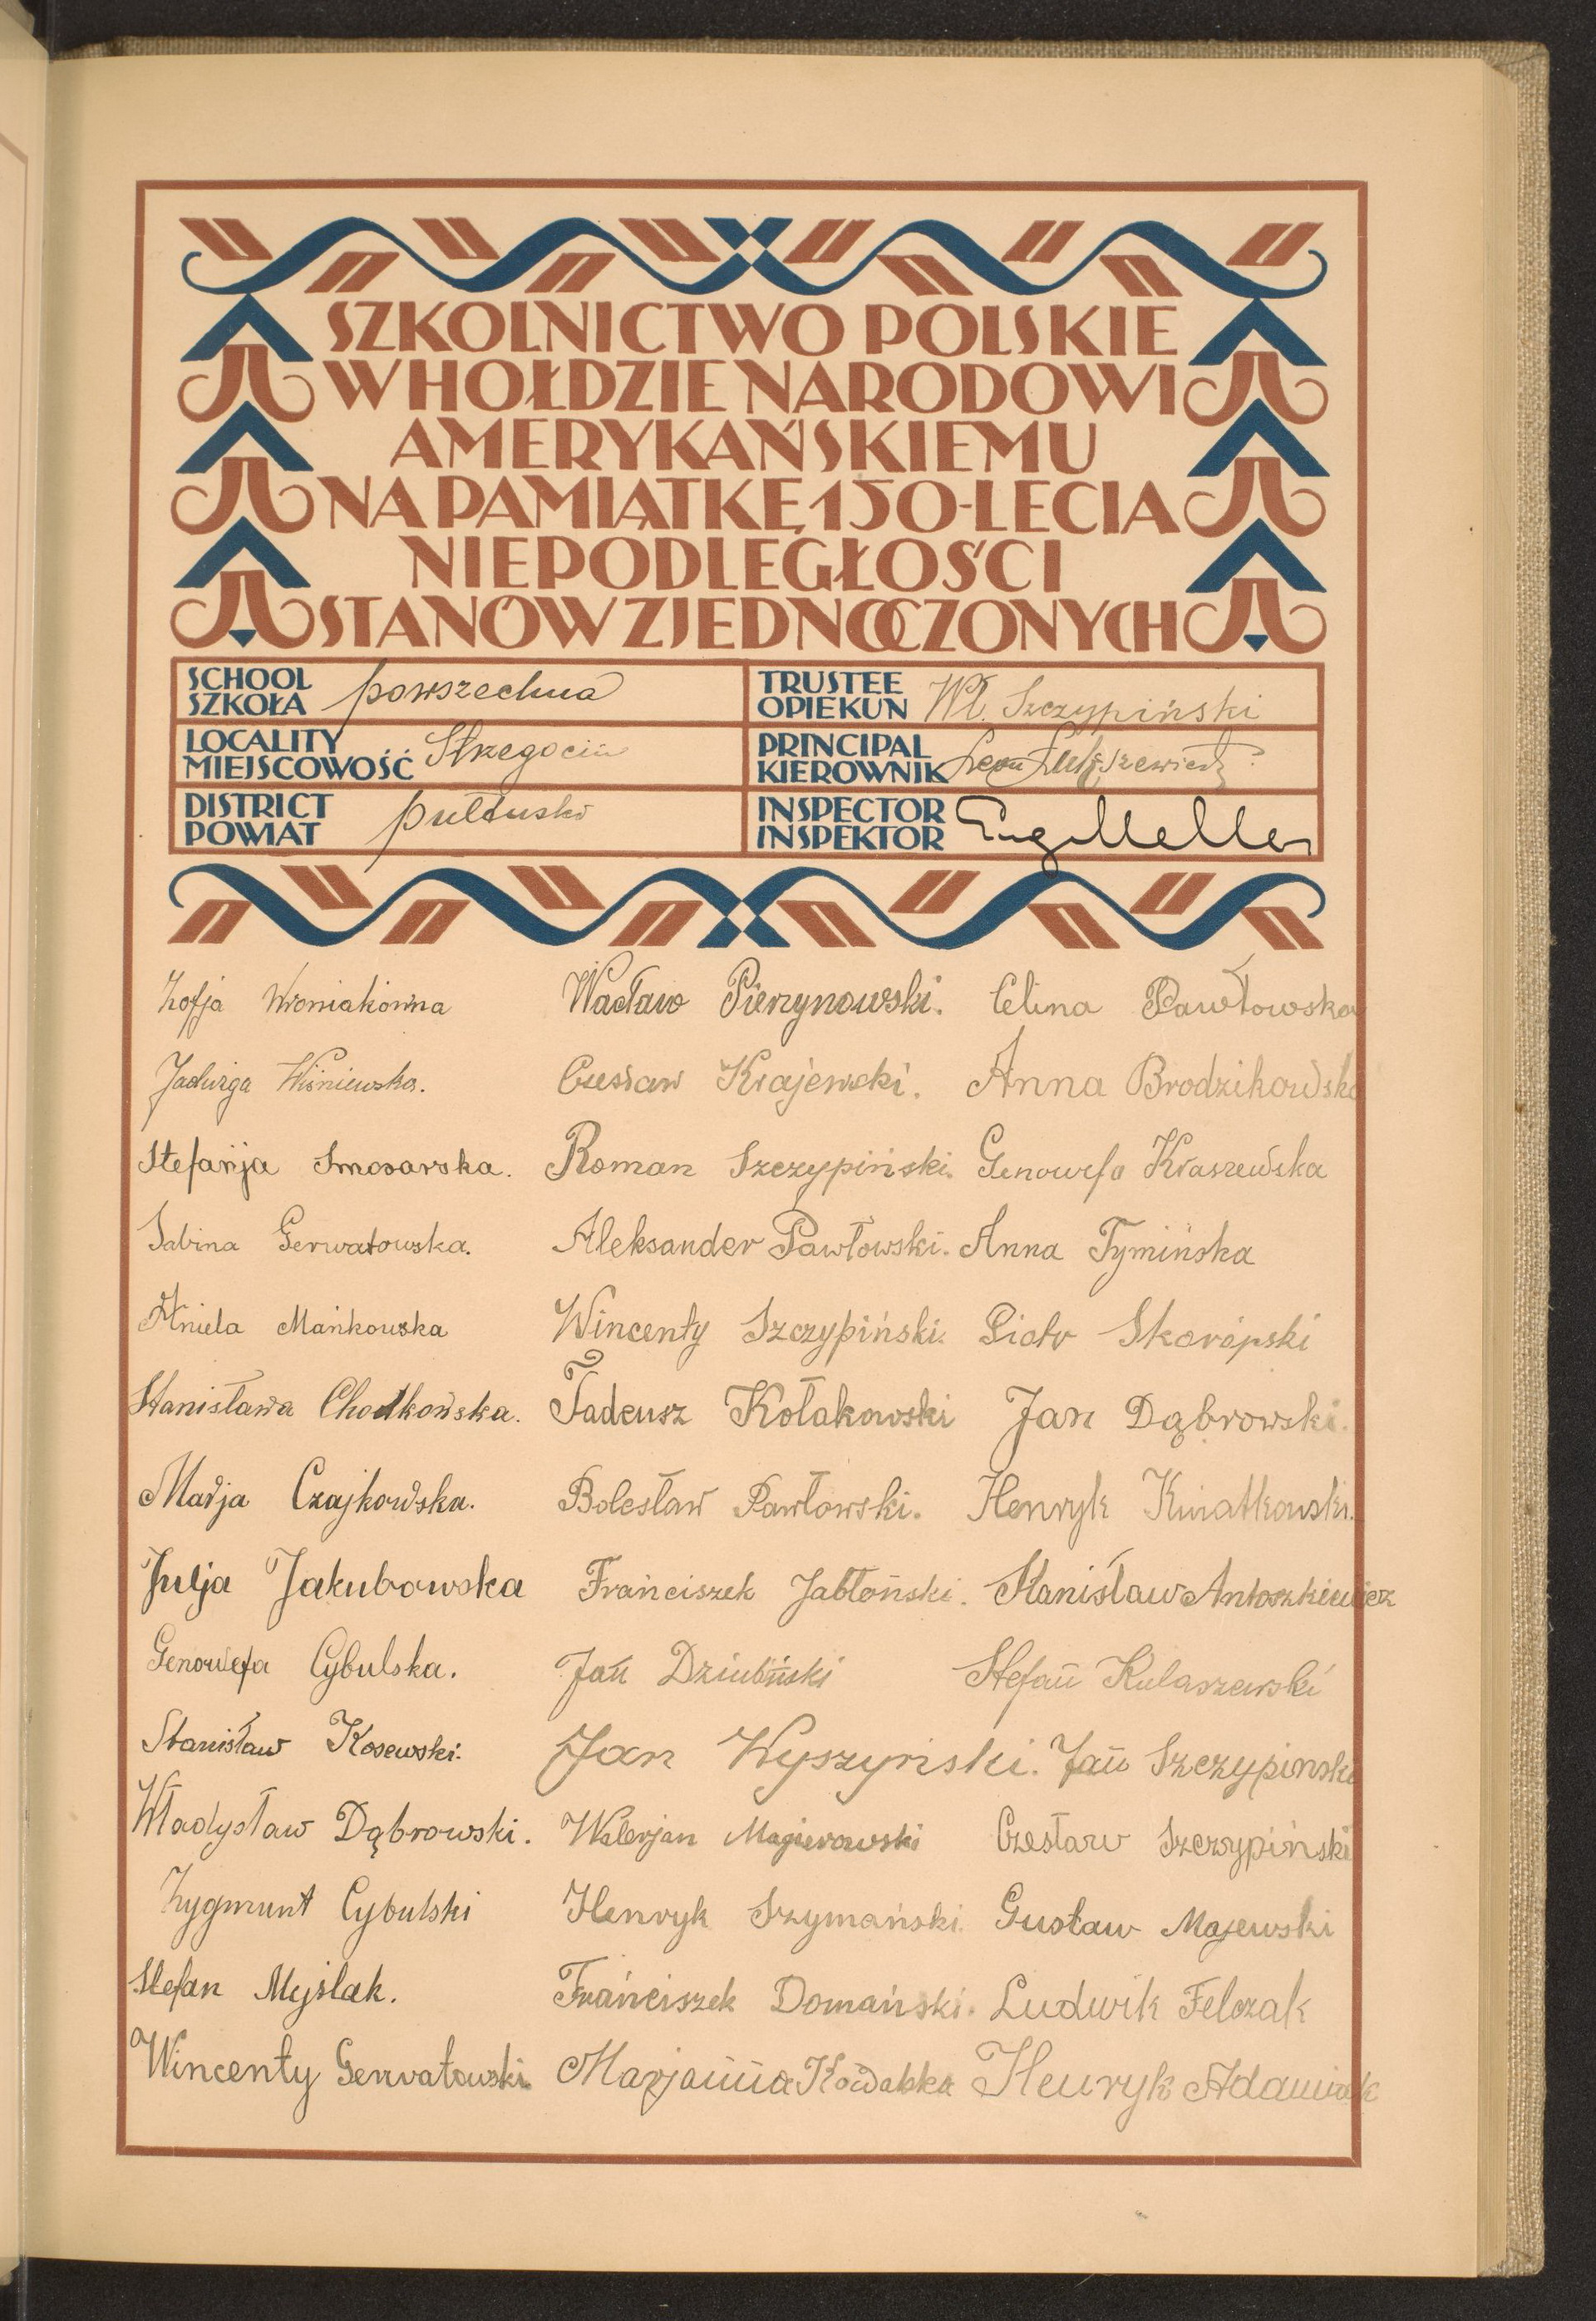 SZKOLNICTWO POLSKIE
W HOŁDZIE NARODOWI
AMERYKAŃSKIEMU
NA PAMIĄTKĘ 150-LECIA
NIEPODLEGŁOŚCI
STANÓW ZJEDNOCZONYCH
SCHOOL
SZKOŁA powszechna
TRUSTEE
OPIEKUN Wł. Szczypiński
LOCALITY
MIEJSCOWOŚĆ Strzegocin
PRINCIPAL
KIEROWNIK Leon
DISTRICT
POWIAT pułtuski
INSPECTOR
INSPEKTOR
Zofja Wroniakówna Wacław Pierzynowski. Celina Pawłowska
Jadwiga Wiśniewska. Czesław Krajewski. Anna Brodzikowska
Stefanja Smosarska. Roman Szczypiński. Genowefa Kraszewska
Sabina Gerwatowska. Aleksander Pawłowski. Anna Tymińska
Aniela Mańkowska Wincenty Szczypiński. Piotr Skorupski
Stanisława Chodkowska. Tadeusz Kołakowski Jan Dąbrowski.
Marja Czajkowska. Bolesław Pawłowski. Henryk Kwiatkowski.
Julja Jakubowska Franciszek Jabłoński. Stanisław Antoszkiewicz
Genowefa Cybulska. Jan Dziubiński Stefan Kulaszewski
Stanisław Kosewski. Jan Wyszyński. Jan Szczypinski
Władysław Dąbrowski. Walerjan Magierowski Czesław Szczypiński
Zygmunt Cybulski Henryk Szymański. Gustaw Majewski
Stefan Myślak. Franciszek Domański. Ludwik Felczak
Wincenty Gerwatowski. Marjanna Kowalska Henryk Adamiak